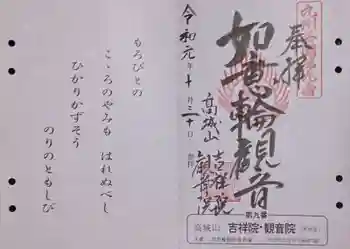 奉拝
如意輪観音
高城山
吉祥院
観音院
令和元年十月二十日
もろびとの
こゝろのやみも はれぬべし
ひかりかずそう
のりのともしび
第九番
高城山 吉祥院・観音院